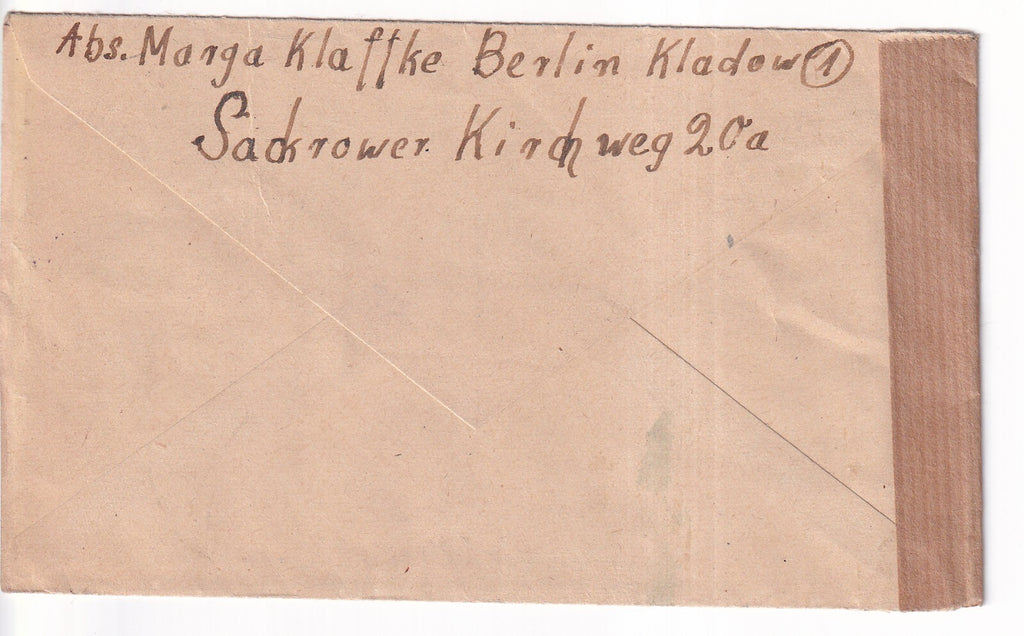 Abs. Marga Klaffke Berlin Kladow ①
Sackrower Kirchweg 20a